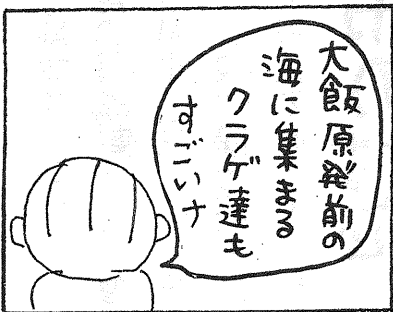 大飯原発前の
海に集まる
クラゲ達も
すごいナ